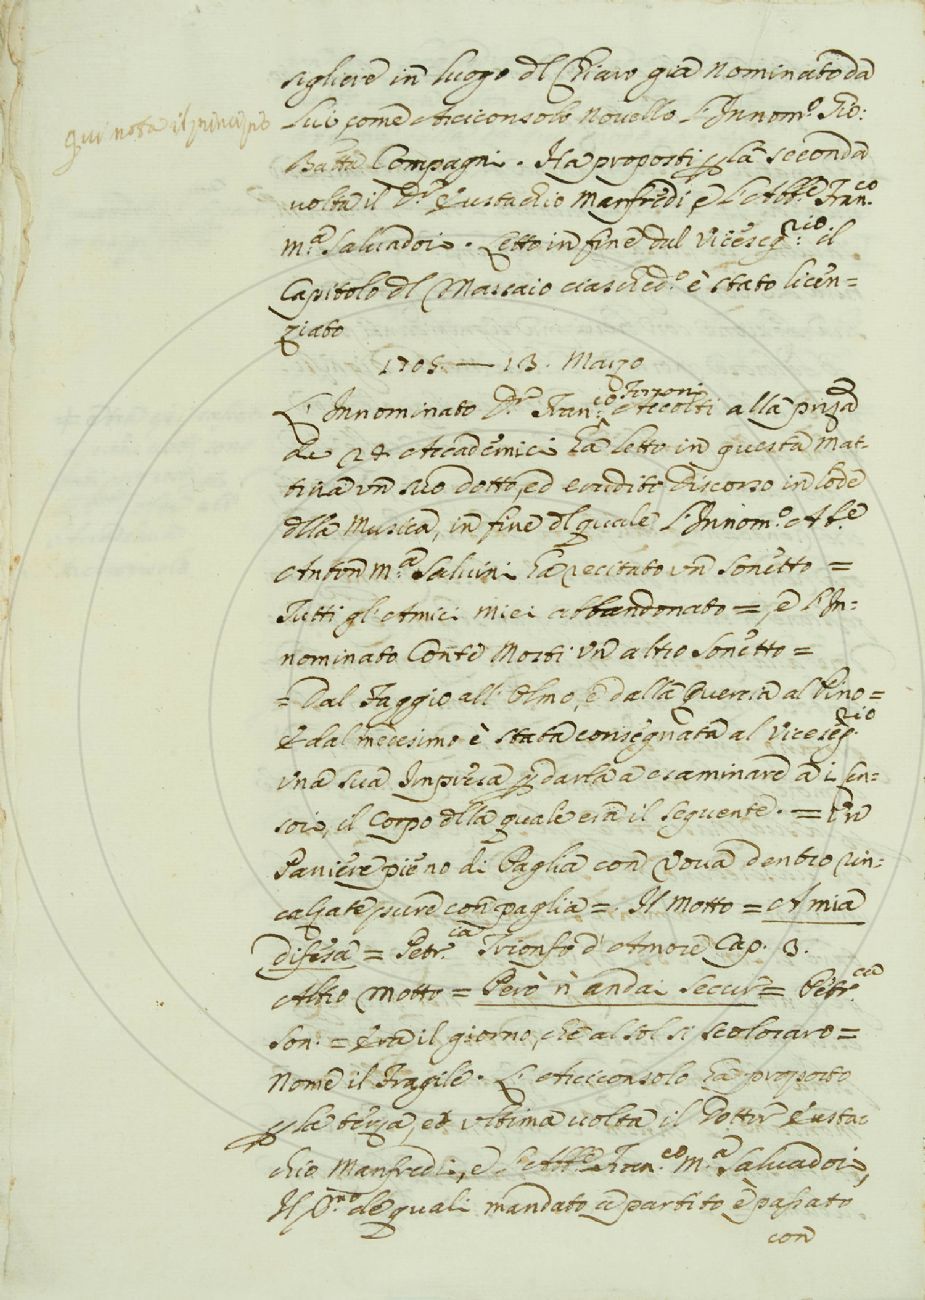 sigliere in luogo dl Chiaro già Nominato da
qui nota il principio
Lui come Arciconsolo Novello l'Innom.º Gio:
Batta Compagni. Ha proposti p la seconda
volta il Dr. Eustachio Manfredi, e l'Abb.e Fran.co
M.a Salvadori. Letto in fine dal Viceseg.rio il
Capitolo dl Massaio ciasched.º è stato licen=
ziato
1705. — 13. Marzo
L'Innominato Dr. Fran.co Forzoni Accolti alla pñza
de 28 Accademici ha letto in questa mat-
tina un suo dotto, ed erudito Discorso in lode
dlla Musica, in fine dl quale l'Innom.º Ab.e
Anton M.a Salvini ha recitato un Sonetto =
Tutti gl'Amici miei abbandonato =, e l'In=
nominato Conte Mozzi un altro Sonetto =
= Dal Faggio all'Olmo, e dalla Quercia al Pino =
E dal medesimo è stata consegnata al Viceseg.rio
una sua Impresa p darla a esaminare a i Cen=
sori, il Corpo dlla quale era il seguente. = Un
Paniere pieno di Paglia con Vova dentro rin=
calzate pure con paglia =. Il Motto = A mia
difesa = Petr.ca Trionfo d'Amore Cap. 3.
Altro Motto = Però n'andai secur = Petr.ca
Son. = Era il giorno, che al sol si scoloraro =
Nome il Fragile. L'Arciconsolo ha proposto
p la terza, ed ultima volta il Dottor Eusta-
chio Manfredi, e l'Abb.e Fran.co M.a Salvadori,
Il P.mo de quali mandato a partito è passato
con